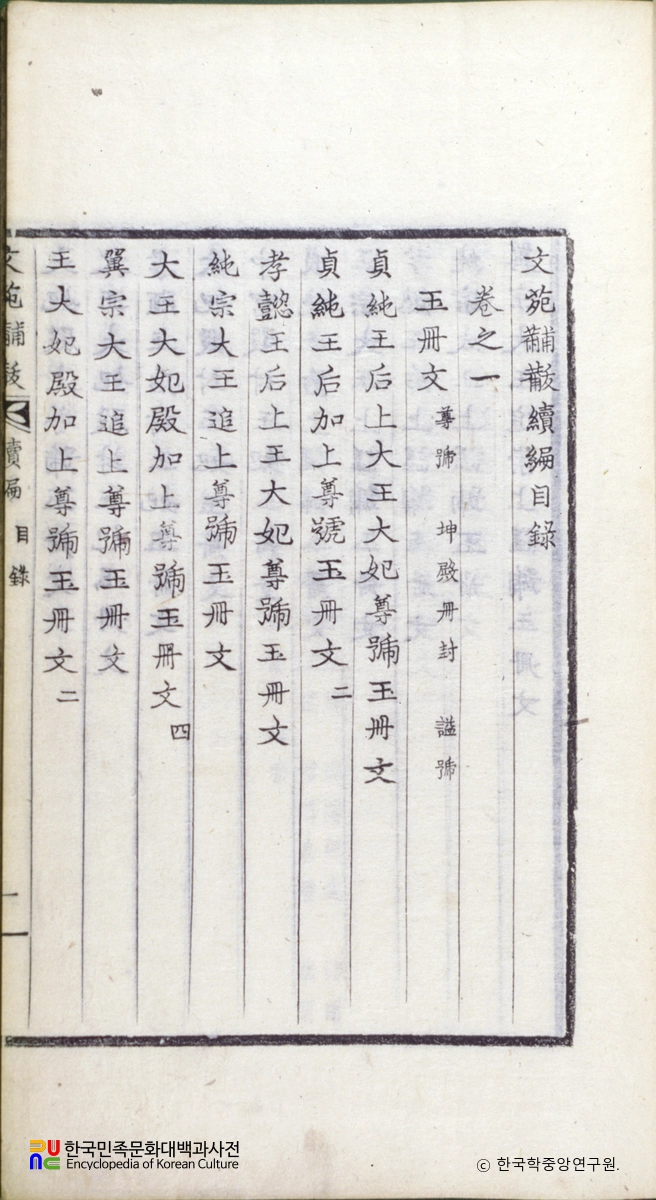 文苑黼黻續編目錄
卷之一
玉冊文 尊號 坤殿冊封 謚號
貞純王后上大王大妃尊號玉冊文
貞純王后加上尊號玉冊文 二
孝懿王后上王大妃尊號玉冊文
純宗大王追上尊號玉冊文
大王大妃殿加上尊號玉冊文 四
翼宗大王追上尊號玉冊文
王大妃殿加上尊號玉冊文 二
文苑黼黻 續編 目錄 一
한국민족문화대백과사전
Encyclopedia of Korean Culture
© 한국학중앙연구원.